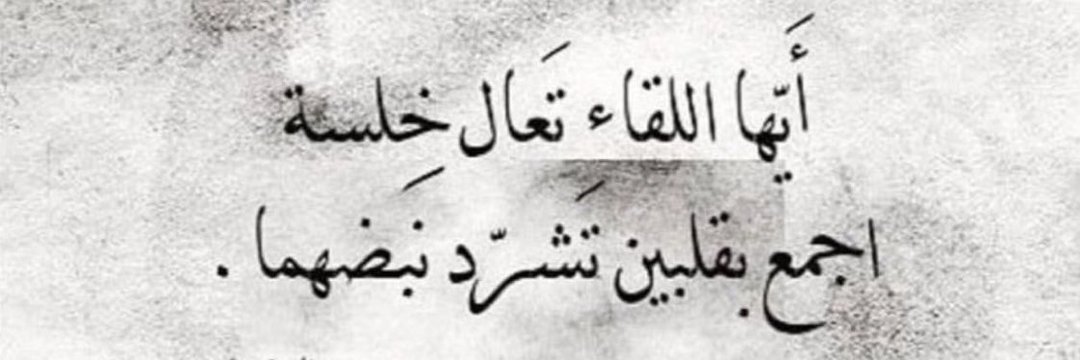 أَيّها اللقاء تَعال خِلسة
اجمع بقلبين تَشرّد نَبضهما .